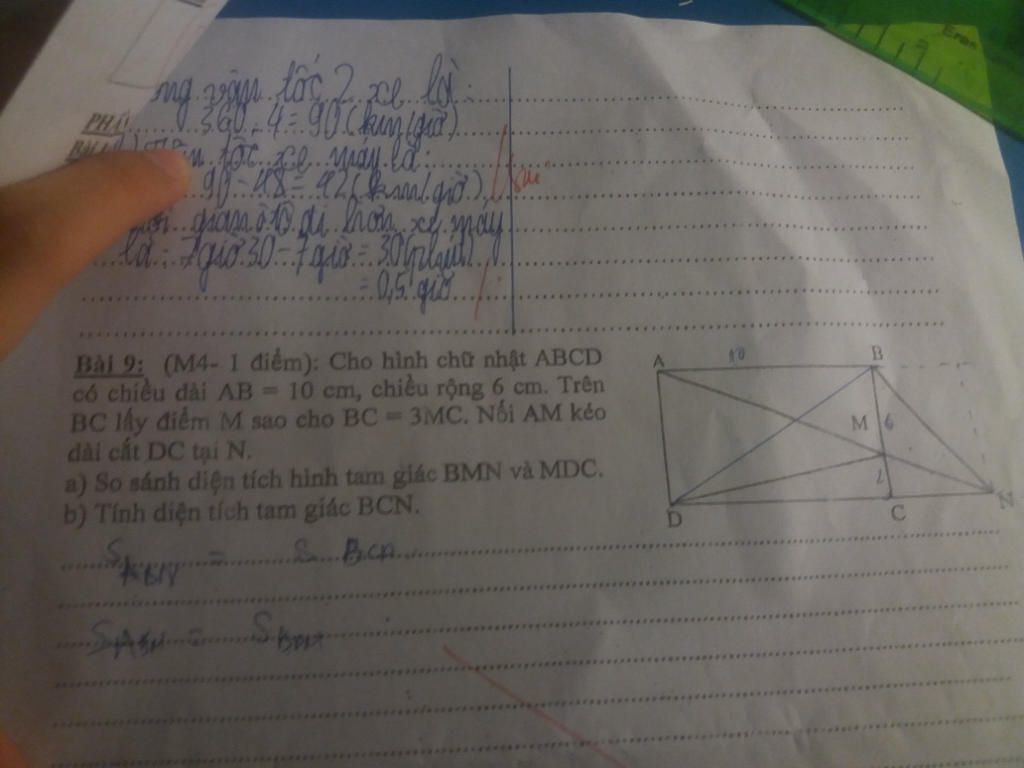 ng vận tốc 2 xe là:
360 : 4 = 90 (km/giờ)
PHẦ
Bài
tốc xe máy là:
90 - 48 = 42 (km/giờ)
gian ô tô đi hơn xe máy
là: 7 giờ 30 - 7 giờ = 30 (phút)
= 0,5 giờ
Bài 9: (M4- 1 điểm): Cho hình chữ nhật ABCD
có chiều dài AB = 10 cm, chiều rộng 6 cm. Trên
BC lấy điểm M sao cho BC = 3MC. Nối AM kéo
dài cắt DC tại N.
a) So sánh diện tích hình tam giác BMN và MDC.
b) Tính diện tích tam giác BCN.
A 10 B
M 6
2
D C N
S ABN = S BCD
S = S
Eras